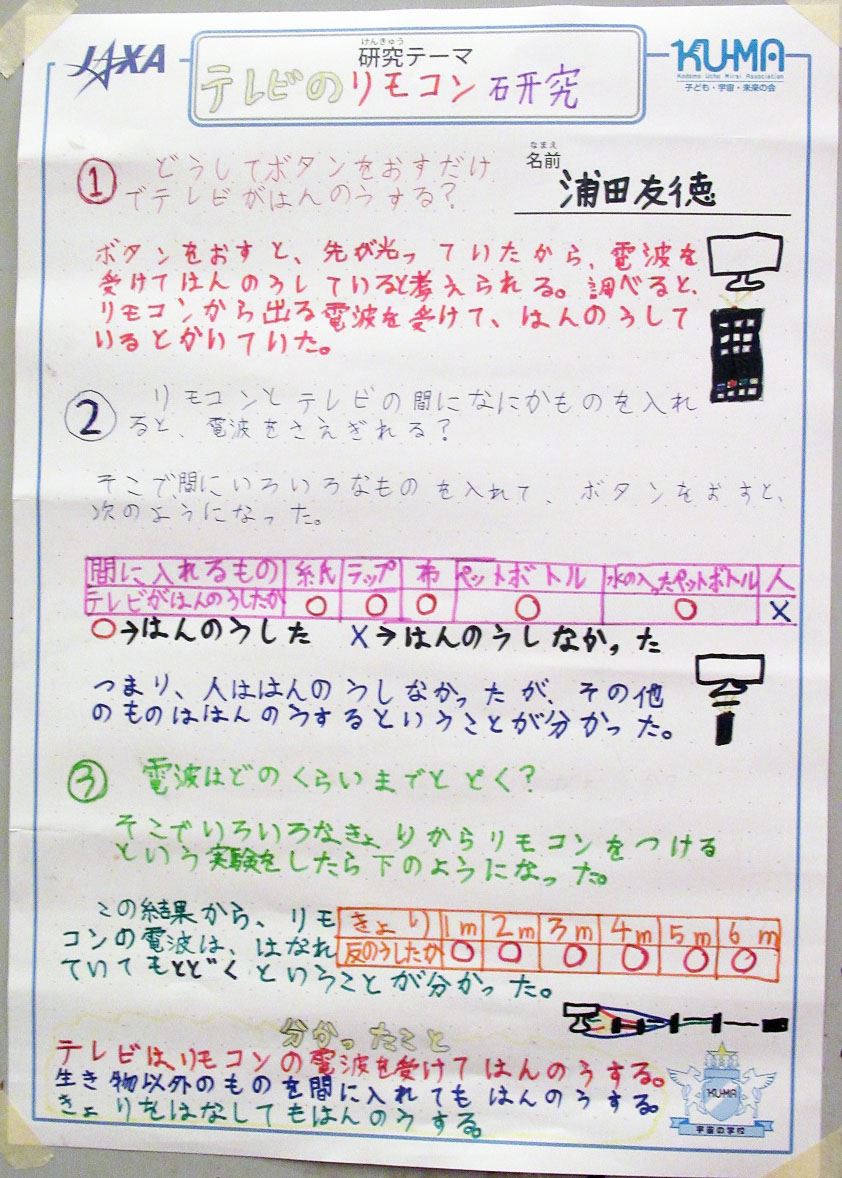 JAXA
けんきゅう
研究テーマ
テレビのリモコン研究
KU-MA
Kodomo Uchu Mirai Association
子ども・宇宙・未来の会
① どうしてボタンをおすだけ
でテレビがはんのうする？
なまえ
名前
浦田友徳
ボタンをおすと、先が光っていたから、電波を
受けてはんのうしていると考えられる。調べると、
リモコンから出る電波を受けて、はんのうして
いるとかいていた。
② リモコンとテレビの間になにかものを入れ
ると、電波をさえぎれる？
そこで、間にいろいろなものを入れて、ボタンをおすと、
次のようになった。
間に入れるもの 紙 ラップ 布 ペットボトル 水の入ったペットボトル 人
テレビがはんのうしたか ○ ○ ○ ○ ○ ×
○→はんのうした ×→はんのうしなかった
つまり、人ははんのうしなかったが、その他
のものははんのうするということが分かった。
③ 電波はどのくらいまでとどく？
そこでいろいろなきょりからリモコンをつける
という実験をしたら下のようになった。
この結果から、リモ
コンの電波は、はなれ
ていてもとどくということが分かった。
きょり 1m 2m 3m 4m 5m 6m
反のうしたか ○ ○ ○ ○ ○ ○
分かったこと
テレビは、リモコンの電波を受けてはんのうする。
生き物以外のものを間に入れてもはんのうする。
きょりをはなしてもはんのうする。
KU-MA
宇宙の学校